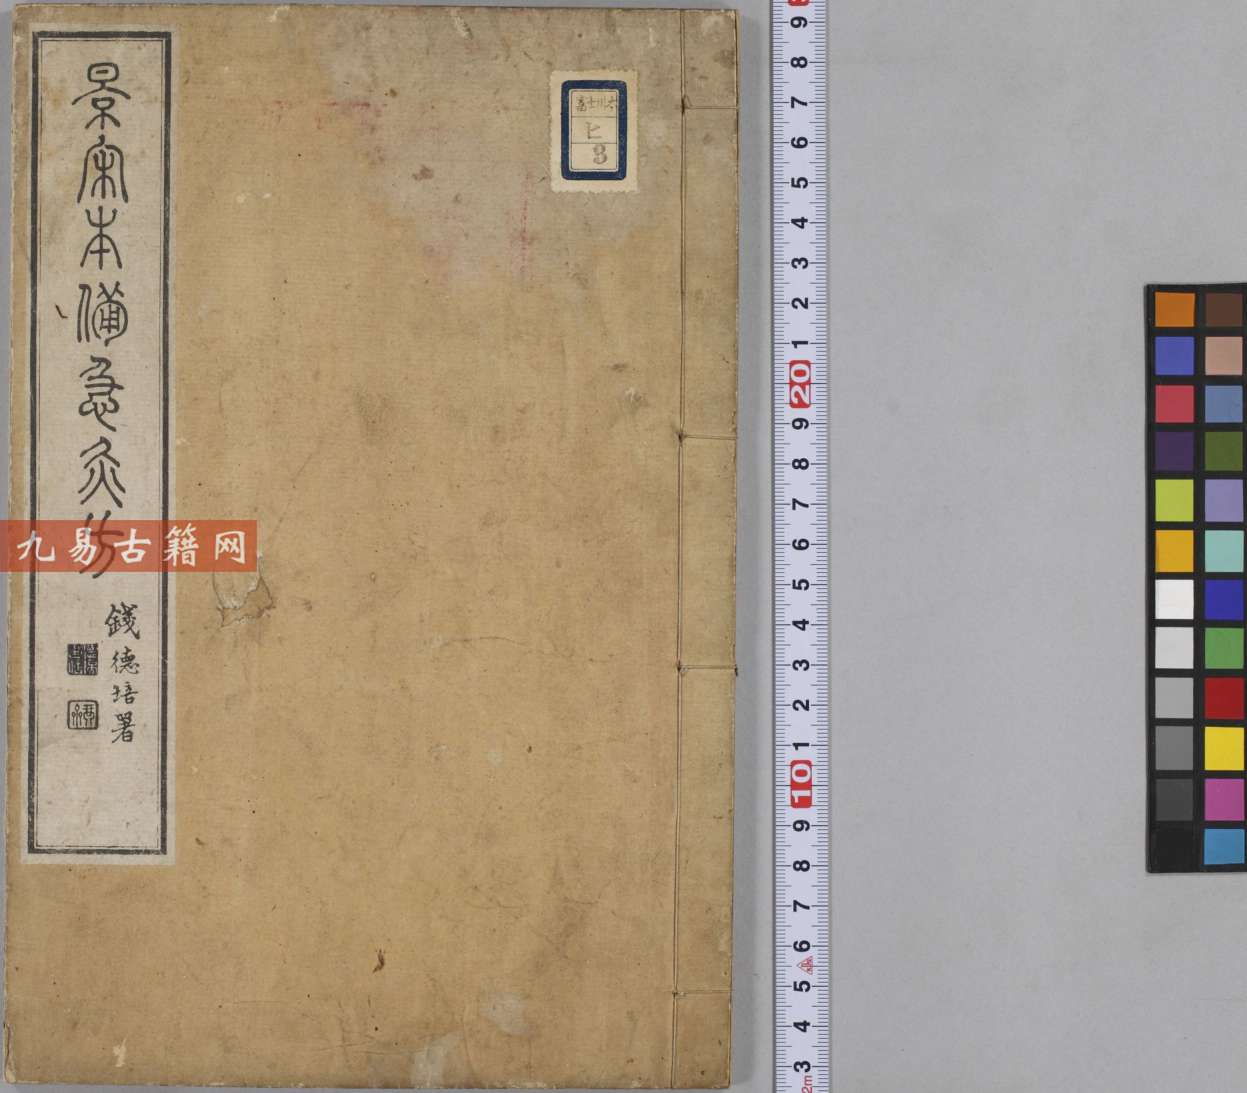 景宋本備急灸方
錢德培署
九易古籍网
富士川本
ヒ
3
9
8
7
6
5
4
3
2
1
20
9
8
7
6
5
4
3
2
1
10
9
8
7
6
5
4
3
2m